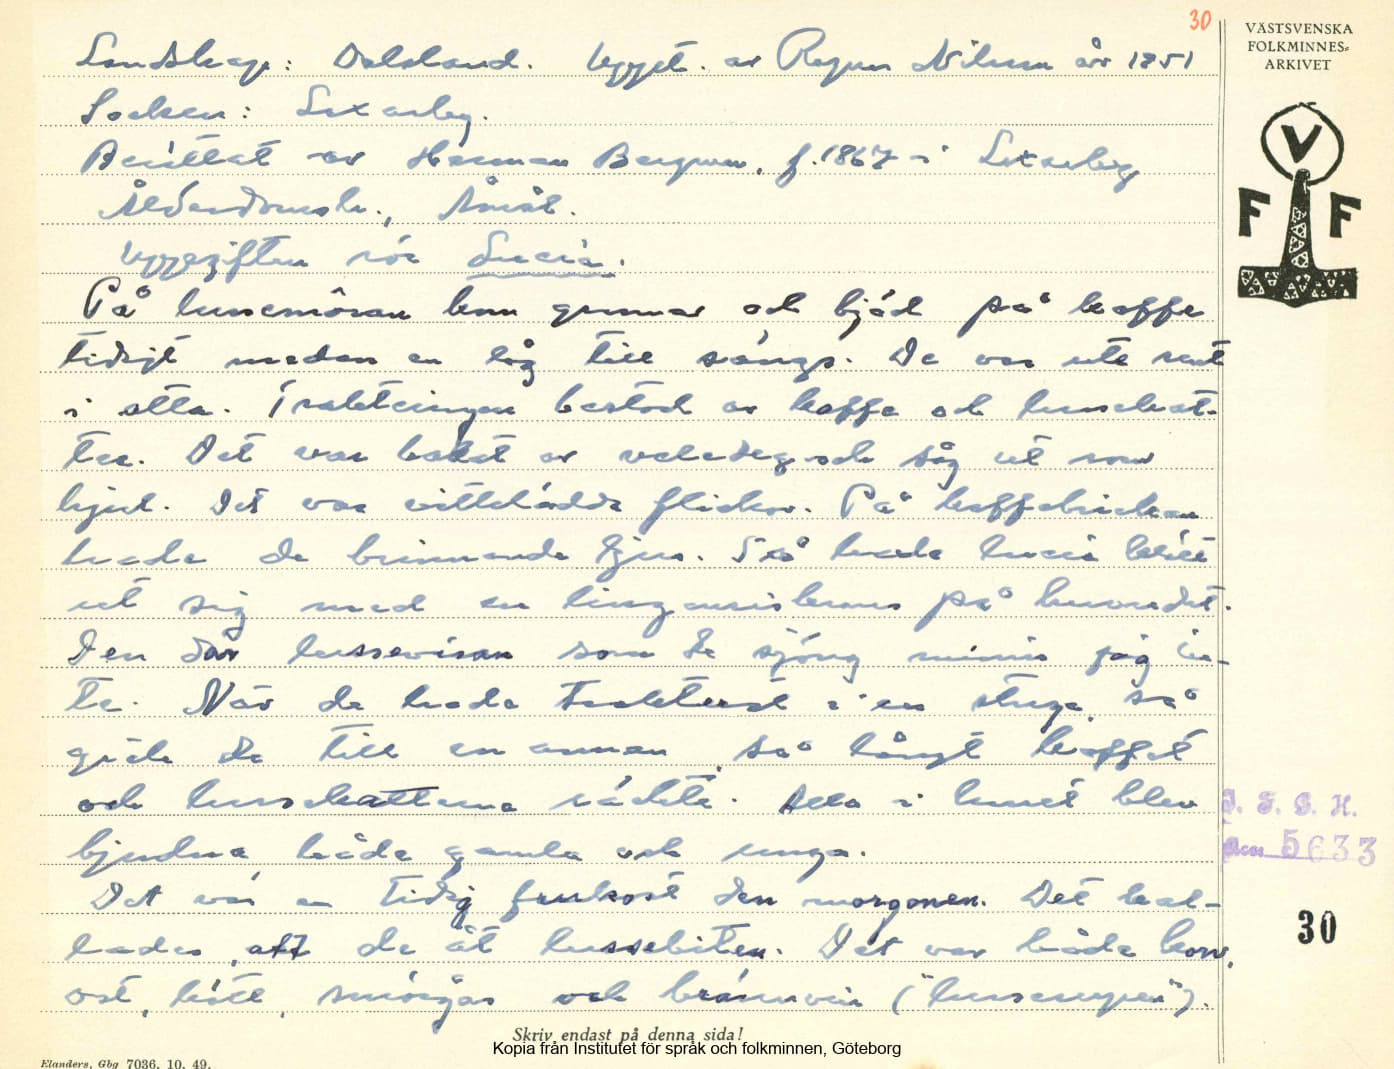 30
VÄSTSVENSKA
FOLKMINNES-
ARKIVET
V
F F
Landskap: Dalsland. Uppt. av Ragnar Nilsson år 1951
Socken: Laxarby.
Berättat av Herman Bergman, f. 1867 i Laxarby
Ålderdomsh., Åmål.
Uppgiften rör Lucia.
På lussemôran kom grannar och bjöd på kaffe
tidigt medan en låg till sängs. De var ute rent
i otta. Trakteringen bestod av kaffe och lussekat-
ter. Det var bakat av vetedeg och såg ut som
hjul. Det var vittklädda flickor. På kaffebrickan
hade de brinnande ljus. Så hade lucia klätt
ut sig med en lingonriskrans på huvudet.
Den där lussevisan som de sjöng minns jag in-
te. När de hade trakterat i en stuga, så
gick de till en annan, så långt kaffet
och lussekatterna räckte. Alla i huset blev
bjudna både gamla och unga.
Det var en tidig frukost den morgonen. Det kal-
lades, att de åt lussebiten. Det var både korv,
ost, kött, smörgås och brännvin ("lussesupen").
J. F. G. H.
5633
30
Skriv endast på denna sida!
Kopia från Institutet för språk och folkminnen, Göteborg
Elanders, Gbg 7036. 10. 49.